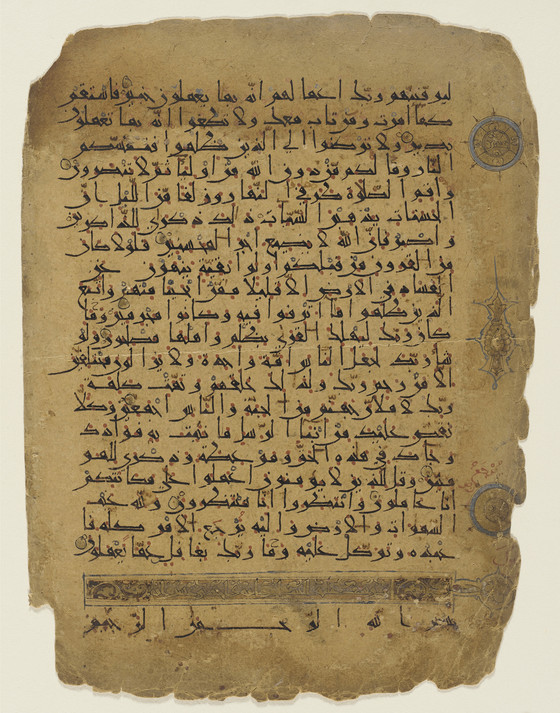 ليوفينهم ربك اعملهم انه بما يعملون خبير فاستقم
كما امرت ومن تاب معك ولا تطغوا انه بما تعملون
بصير ولا تركنوا الى الذين ظلموا فتمسكم
النار وما لكم من دون الله من اوليا ثم لا تنصرون
واقم الصلاة طرفي النهار وزلفا من الليل ان
الحسنات يذهبن السيئات ذلك ذكرى للذاكرين
واصبر فان الله لا يضيع اجر المحسنين فلولا كان
من القرون من قبلكم اولوا بقية ينهون عن
الفساد في الارض الا قليلا ممن انجينا منهم واتبع
الذين ظلموا ما اترفوا فيه وكانوا مجرمين وما
كان ربك ليهلك القرى بظلم واهلها مصلحون ولو
شا ربك لجعل الناس امة واحدة ولا يزالون مختلفين
الا من رحم ربك ولذلك خلقهم وتمت كلمة
ربك لاملان جهنم من الجنة والناس اجمعين وكلا
نقص عليك من انبا الرسل ما نثبت به فؤادك
وجاك في هذه الحق وموعظة وذكرى للمو
منين وقل للذين لا يؤمنون اعملوا على مكانتكم
انا عاملون وانتظروا انا منتظرون ولله غيب
السموات والارض واليه يرجع الامر كله فا
عبده وتوكل عليه وما ربك بغافل عما تعملون
بسم الله الرحمن الرحيم